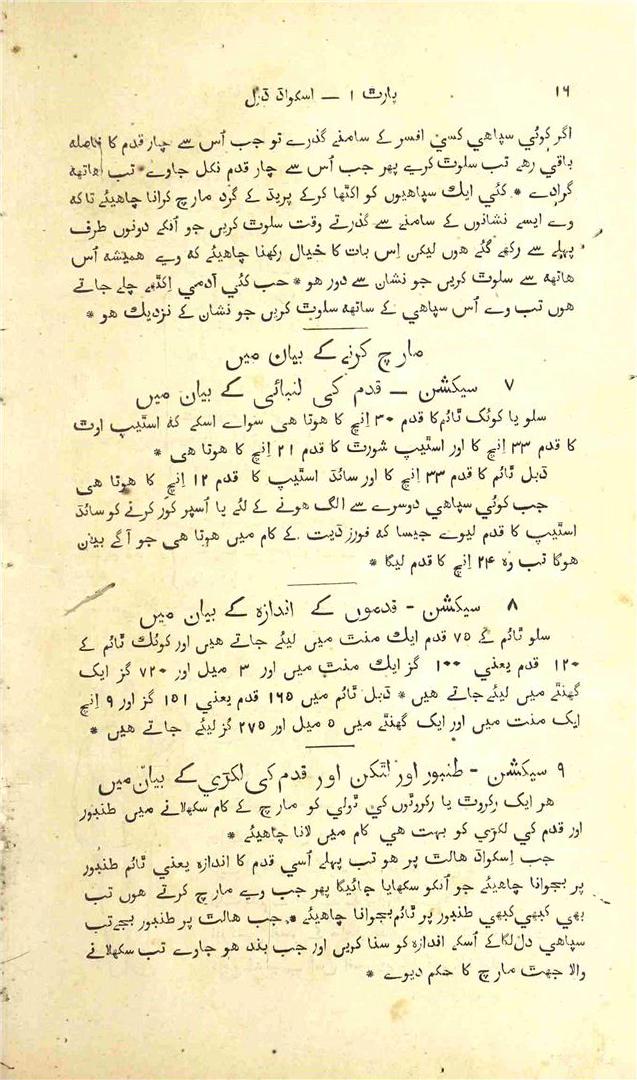 ١٦ پارٹ ١ — اسکواڈ ڈرل
اگر کوئي سپاهي کسي افسر کے سامنے گذرے تو جب اُس سے چار قدم کا فاصله
باقي رهے تب سلوٹ کرے پھر جب اُس سے چار قدم نکل جاوے تب هاتھه
گرادے * کئي ایک سپاهیوں کو اکٹھا کرکے پریڈ کے گرد مارچ کرانا چاهیئے تاکه
وے ایسے نشانوں کے سامنے سے گذرتے وقت سلوٹ کریں جو اُنکے دونوں طرف
پہلے سے رکھے گئے هوں لیکن اِس بات کا خیال رکھنا چاهیئے که وے همیشه اُس
هاتھه سے سلوٹ کریں جو نشان سے دور هو * جب کئي آدمي اِکٹھے چلے جاتے
هوں تب وے اُس سپاهي کے ساتھه سلوٹ کریں جو نشان کے نزدیک هو *
مارچ کرنے کے بیان میں
٧ سیکشن — قدم کی لنبائی کے بیان میں
سلو یا کوئک ٹائم کا قدم ٣٠ اِنچ کا هوتا هی سواے اسکے که اسٹیپ اوٹ
کا قدم ٣٣ اِنچ کا اور اسٹیپ شورٹ کا قدم ٢١ اِنچ کا هوتا هی *
ڈبل ٹائم کا قدم ٣٣ اِنچ کا اور سائڈ اسٹیپ کا قدم ١٢ اِنچ کا هوتا هی
جب کوئي سپاهي دوسرے سے الگ هونے کے لئے یا اُسپر کور کرنے کو سائڈ
اسٹیپ کا قدم لیوے جیسا که فورز ڈیپ کے کام میں هوتا هی جو آگے بیان
هوگا تب وه ٢۴ اِنچ کا قدم لیگا *
٨ سیکشن — قدموں کے اندازه کے بیان میں
سلو ٹائم کے ٧٥ قدم ایک منٹ میں لیئے جاتے هیں اور کوئک ٹائم کے
١٢٠ قدم یعني ١٠٠ گز ایک منٹ میں اور ٣ میل اور ٧٢٠ گز ایک
گھنٹے میں لیئے جاتے هیں * ڈبل ٹائم میں ١٦٥ قدم یعني ١٥١ گز اور ٩ اِنچ
ایک منٹ میں اور ایک گھنٹے میں ٥ میل اور ٢٧٥ گز لیئے جاتے هیں *
٩ سیکشن — طنبور اور لٹکن اور قدم کی لکڑي کے بیان میں
هر ایک رکروٹ یا رکروٹوں کي ٹولي کو مارچ کے کام سکھلانے میں طنبور
اور قدم کي لکڑي کو بہت هي کام میں لانا چاهیئے *
جب اِسکواڈ هالٹ پر هو تب پہلے اُسي قدم کا اندازه یعني ٹائم طنبور
پر بجوانا چاهیئے جو اُنکو سکھایا جائیگا پھر جب وے مارچ کرتے هوں تب
بھي کبھي کبھي طنبور پر ٹائم بجوانا چاهیئے * جب هالٹ پر طنبور بجے تب
سپاهي دل لگا کے اُسکے اندازه کو سنا کریں اور جب بند هو جاوے تب سکھلانے
والا جھٹ مارچ کا حکم دیوے *